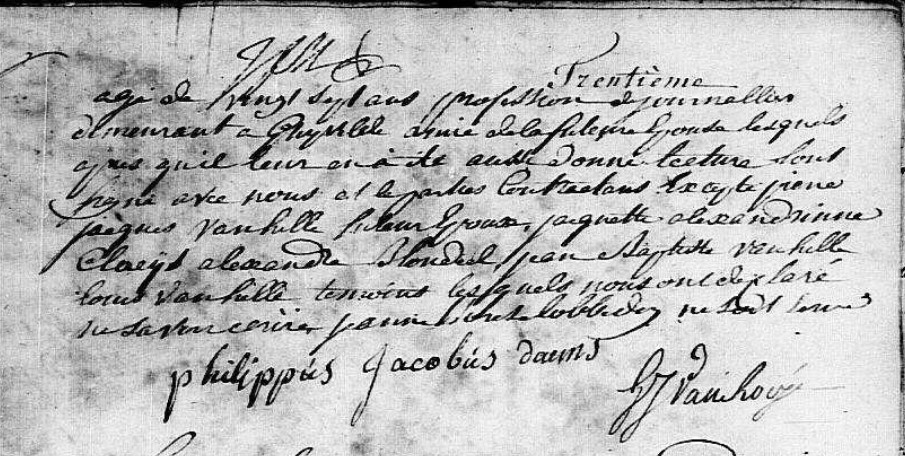 Trentième
agé de vingt sept ans profession de journallier
demeurant a Ghyvelde amie de la future Epouse lesquels
apres qu'il leur en à ete aussi donné lecture sont
signé avec nous et le parties Contractans Excepté piere
jacques vanhille futeur Epoux, jacquette alexandrinne
Claeys alexandre Blondeel, jean Baptiste vanhille
louis Vanhille temoins lesquels nous ont declaré
ne savoir ecrire
philippus Jacobus daems
vanhove